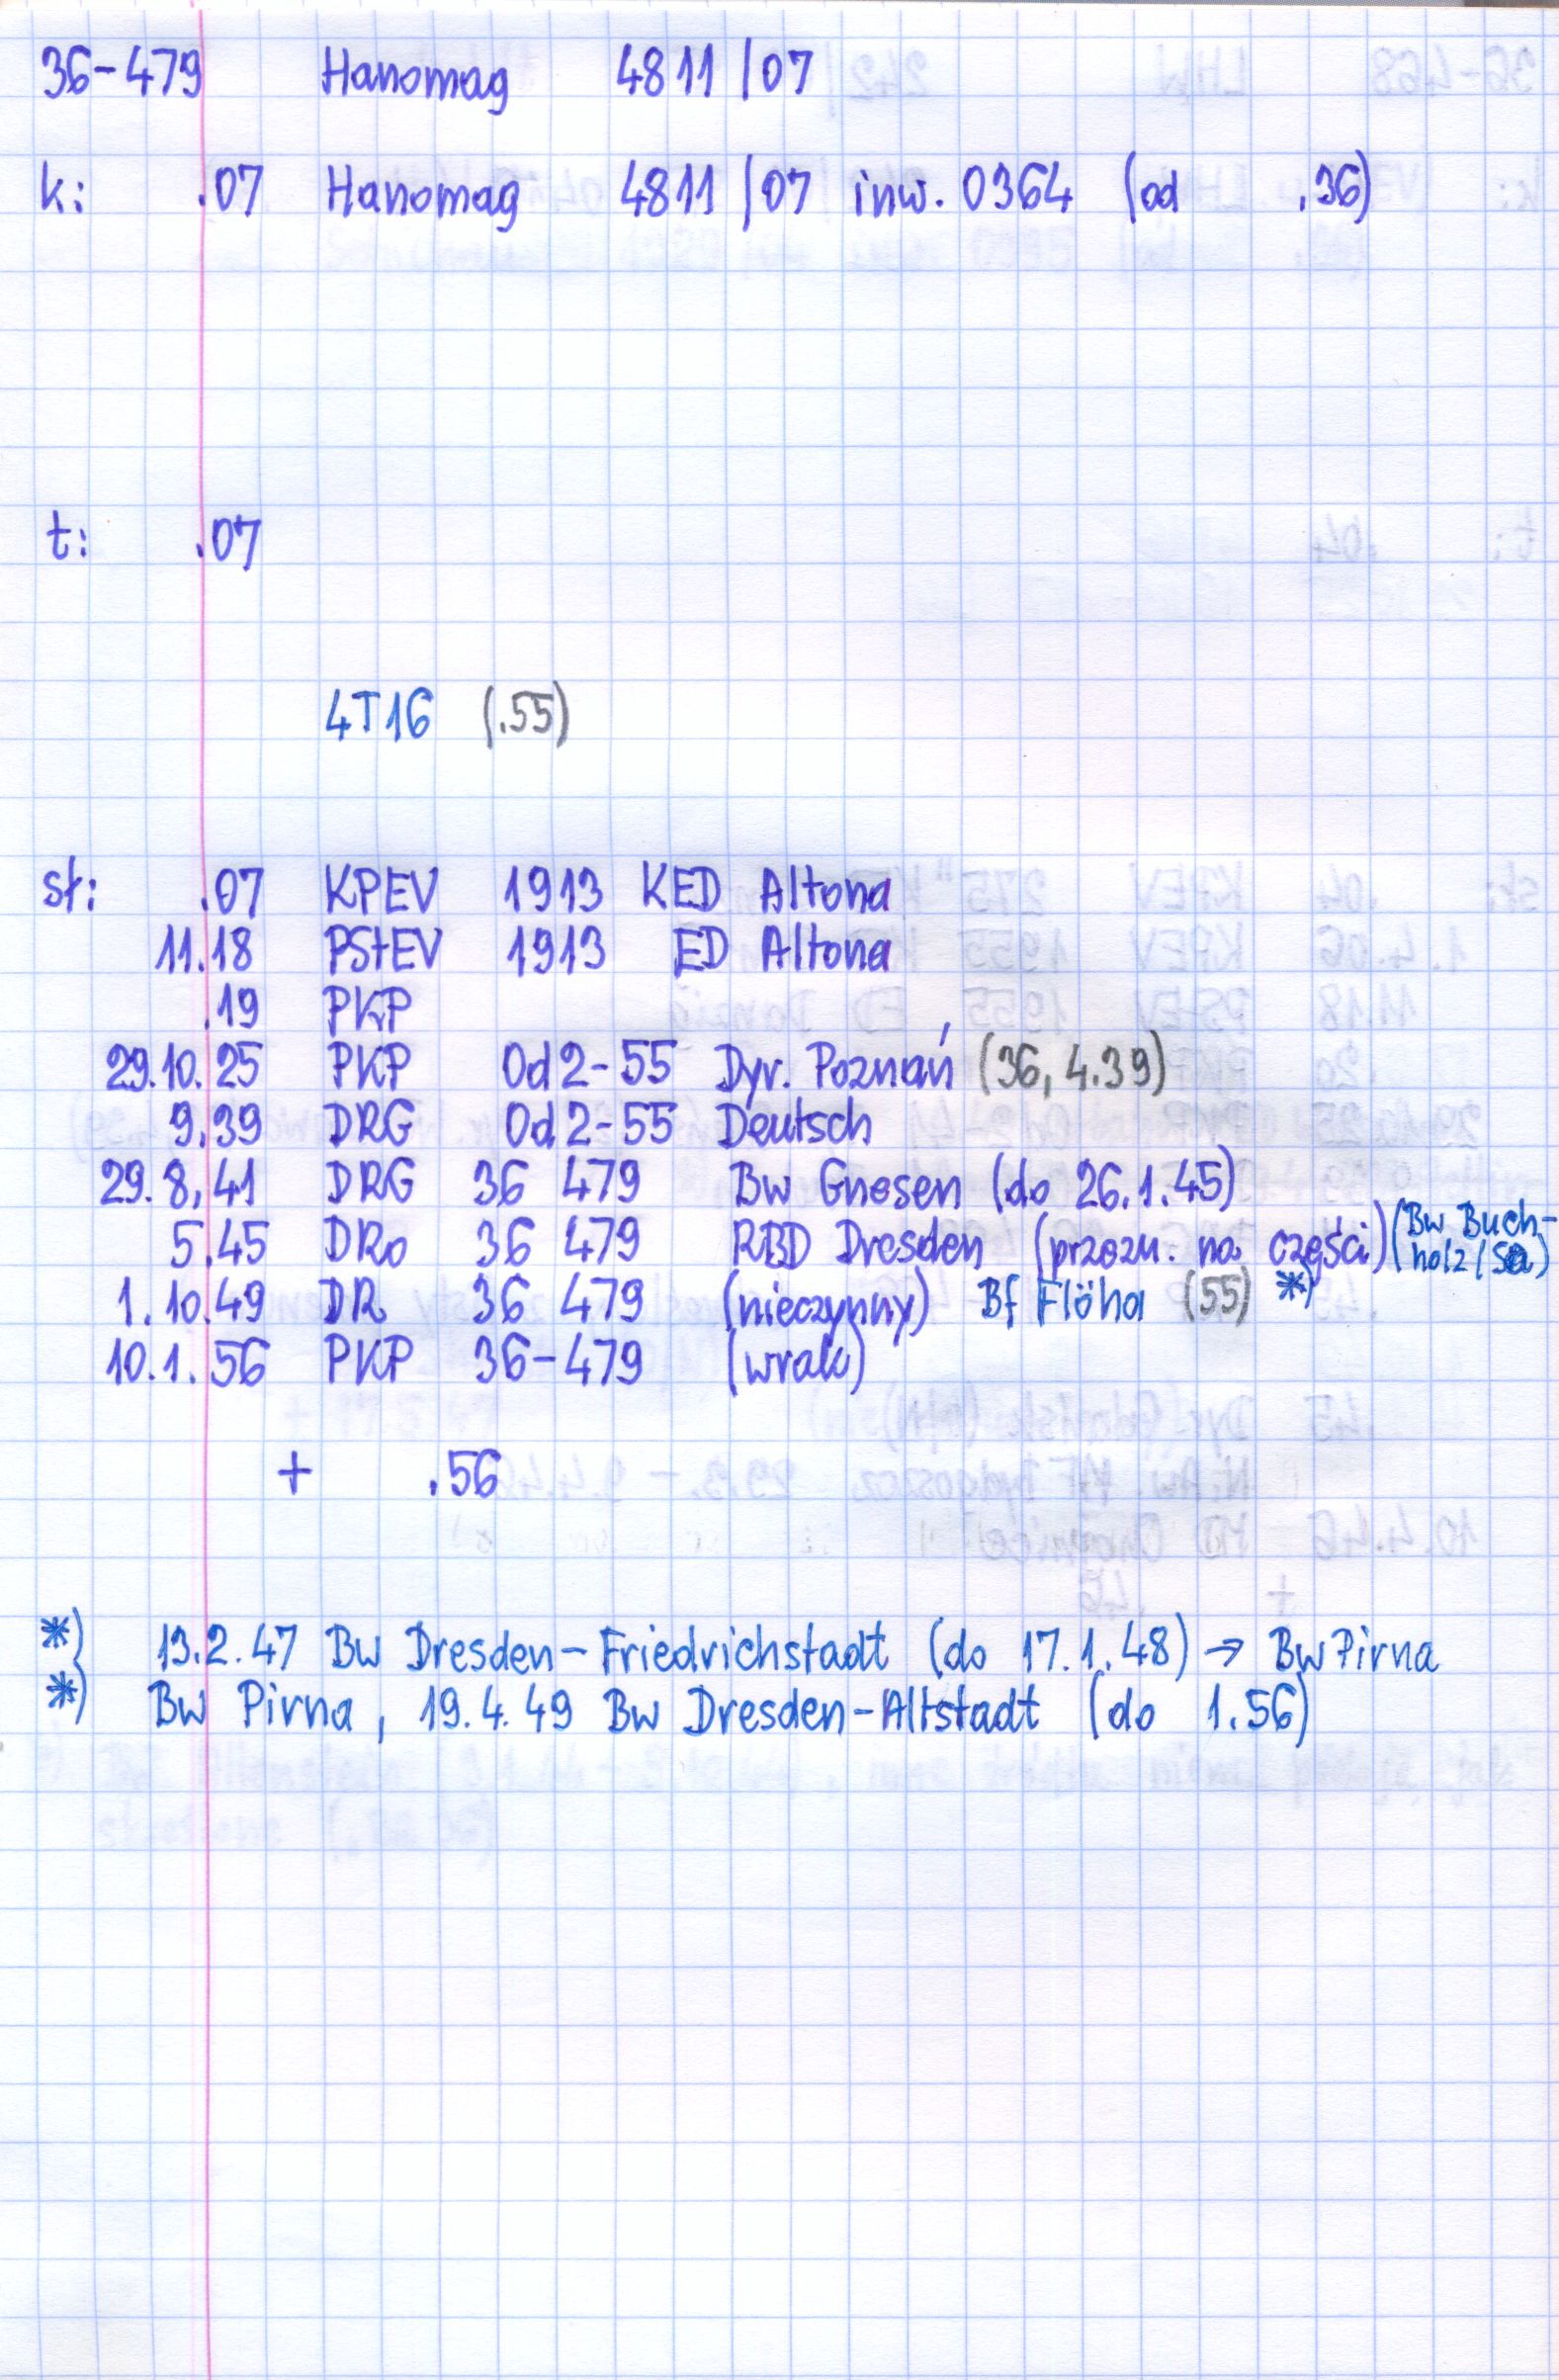 36-479 Hanomag 4811/07
k: .07 Hanomag 4811/07 inw. 0364 (od .36)
t: .07
4T16 (.55)
st: .07 KPEV 1913 KED Altona
11.18 PStEV 1913 ED Altona
.19 PKP
29.10.25 PKP Od2-55 Dyr. Poznań (36, 4.39)
9.39 DRG Od2-55 Deutsch
29.8.41 DRG 36 479 Bw Gnesen (do 26.1.45)
5.45 DRo 36 479 RBD Dresden (przezn. na części) (Bw Buch-
holz/Sa)
1.10.49 DR 36 479 (nieczynny) Bf Flöha (55) *)
10.1.56 PKP 36-479 (wrak)
+ .56
*) 13.2.47 Bw Dresden-Friedrichstadt (do 17.1.48) → Bw Pirna
*) Bw Pirna, 19.4.49 Bw Dresden-Altstadt (do 1.56)